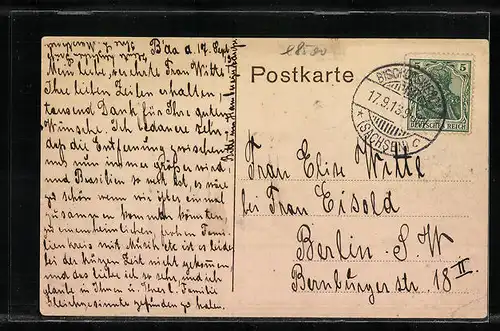 B'da a 17. Sept.
Mein liebe, verehrte Frau Witte
Ihre lieben Zeilen erhalten,
tausend Dank für Ihre guten
Wünsche. Ich bedauere sehr,
daß die Entfernung zwischen
uns nun immer größer wird
und Brasilien so weit ist, es wäre
zu schön wenn wir öfter einmal
zusammen kommen könnten,
zu einem heimlichen, frohen Fami-
lienkreis mit Musik etc ist es leider
bei der kurzen Zeit nicht gekommen
und das liebe ich so sehr und ich
glaube in Ihnen u. Ihrer l. Familie
Gleichgesinnte gefunden zu haben.
Postkarte
5 5
DEUTSCHES REICH
17.9.13
* (SACHSEN)
Frau Elise Witte
bei Frau Eisold
Berlin S.W
Bernburger str. 18 II.